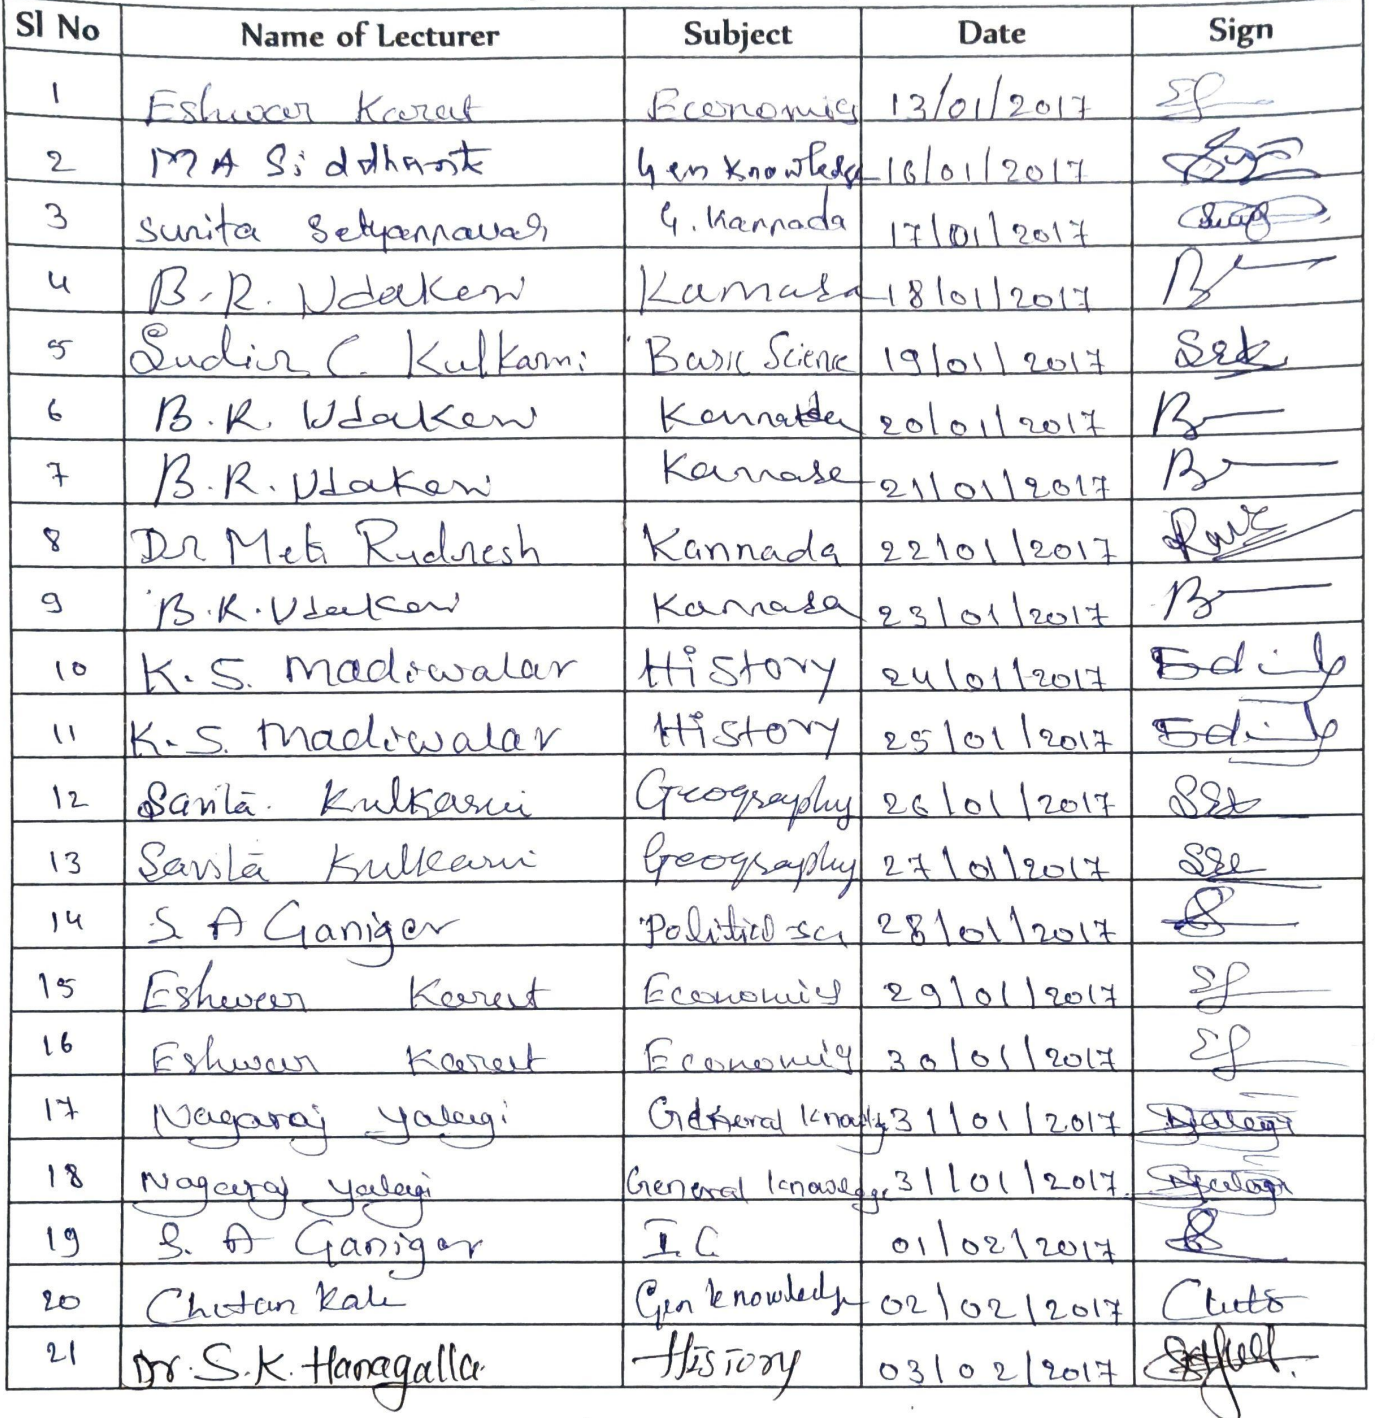 Sl No Name of Lecturer Subject Date Sign
1 Eshwar Karat Economics 13/01/2017
2 M A Siddhant Gen Knowledge 16/01/2017
3 Sunita Setyannavar G. Kannada 17/01/2017
4 B.R. Udakeri Kannada 18/01/2017
5 Sudir C. Kulkarni Basic Science 19/01/2017
6 B.R. Udakeri Kannada 20/01/2017
7 B.R. Udakeri Kannada 21/01/2017
8 Dr Meti Rudresh Kannada 22/01/2017
9 B.R. Udakeri Kannada 23/01/2017
10 K.S. Madiwalar History 24/01/2017
11 K.S. Madiwalar History 25/01/2017
12 Savita Kulkarni Geography 26/01/2017
13 Savita Kulkarni Geography 27/01/2017
14 S A Ganiger Political sci 28/01/2017
15 Eshwar Karat Economics 29/01/2017
16 Eshwar Karat Economics 30/01/2017
17 Nagaraj yalagi General 31/01/2017 Nyalagi
18 Nagaraj yalagi General knowledge 31/01/2017 Nyalagi
19 S. A Ganiger I.C 01/02/2017
20 Chetan Kale Gen knowledge 02/02/2017
21 Dr. S.K. Hanagalla History 03/02/2017